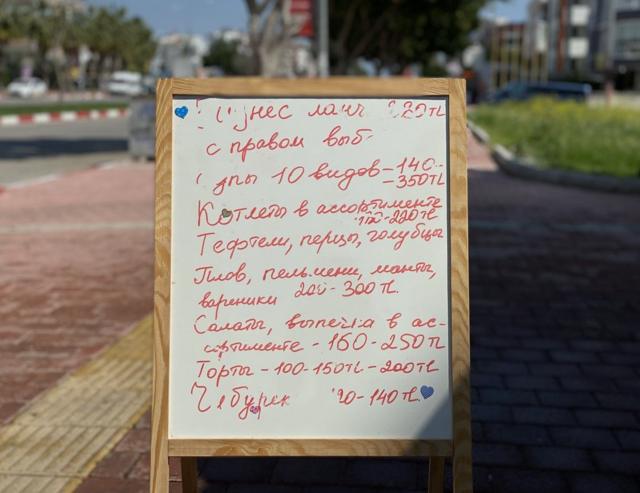 ланч
с правом
10 видов - 140 -
- 350 TL
Котлеты в ассортименте
- 220 TL
Тефтели, перцы, голубцы
Плов, пельмени, манты,
вареники 200 - 300 TL
Салаты, выпечка в ас-
сортименте - 160 - 250 TL
Торты - 100 - 150 TL - 200 TL
- 140 TL